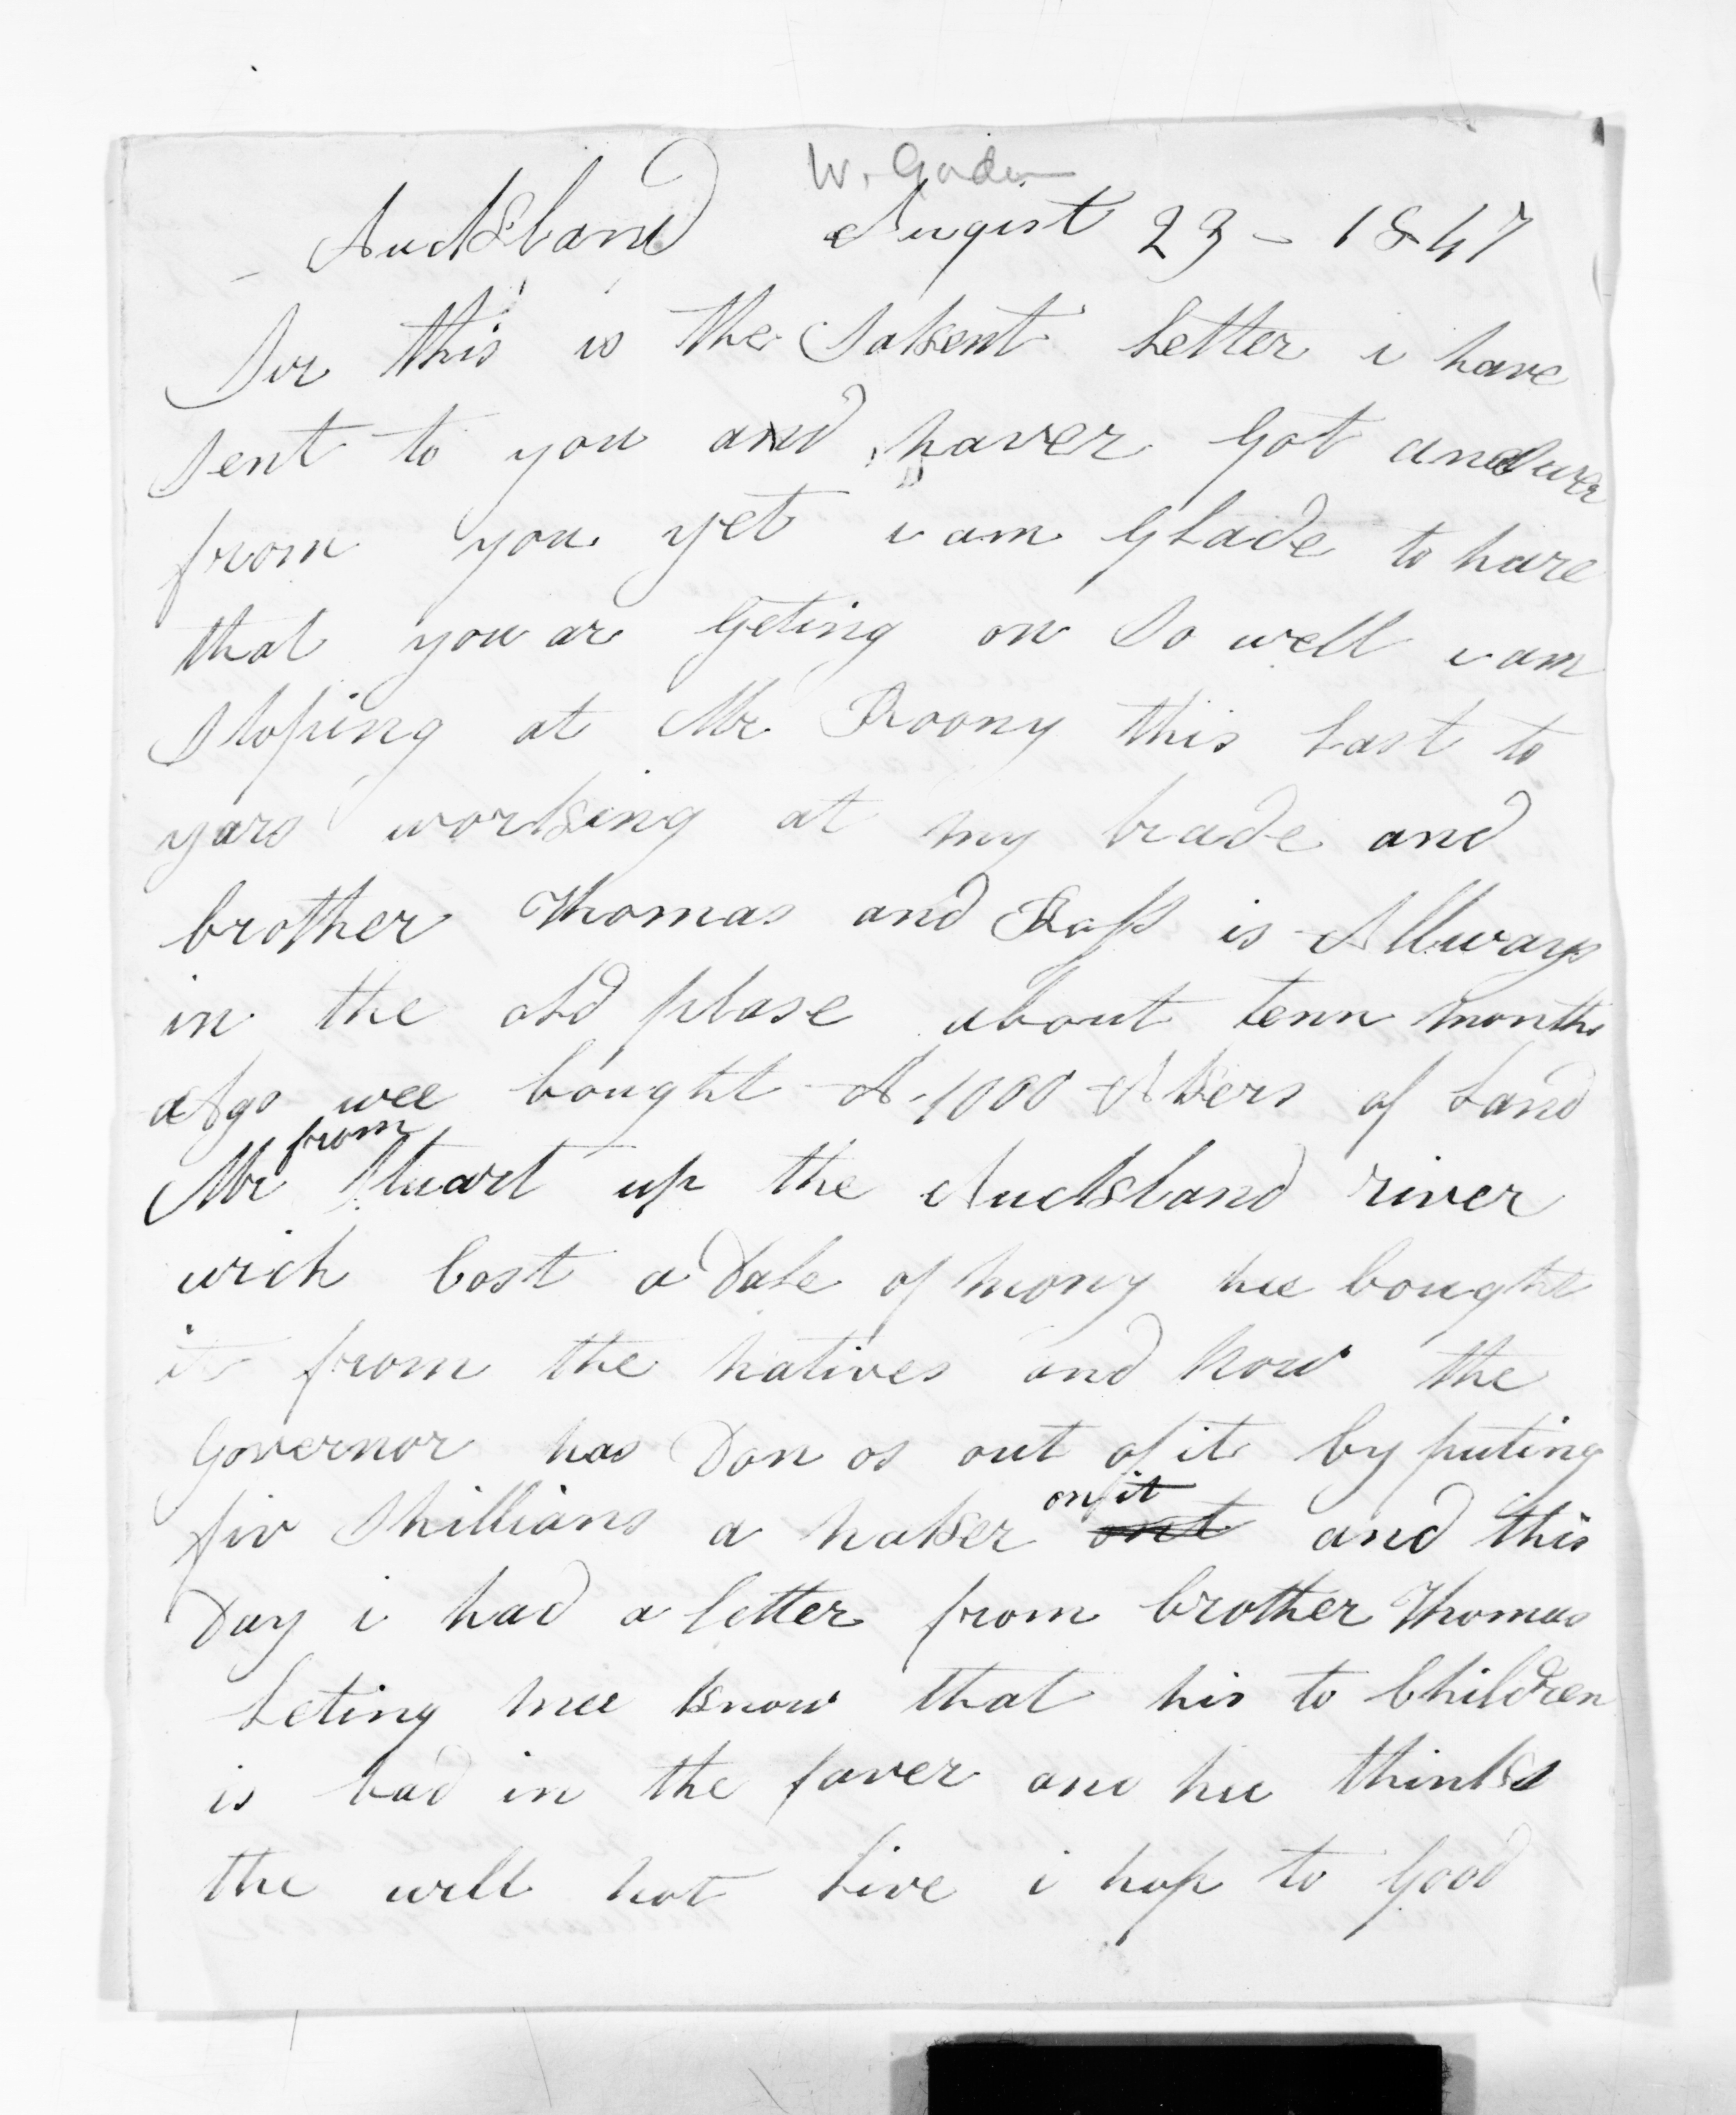 W. Gordon
Auckland August 23 - 1847
Sir this is the Sakent Letter i have
sent to you and naver Got answer
from you yet i am Glade to hare
that you ar Geting on So well i am
Stoping at Mr Roony this Last to
yars working at my trade and
brother Thomas and is Allways
in the old plase about tenn months
Ago wee bought A 1000 Akers of Land
from
Mr Stuart up the Auckland river
wich Cost a Dale of mony hee bought
it from the natives and now the
Governor has Don os out of it by puting
fiv Shillians a naker on it and this
Day i had a letter from brother Thomas
Leting mee know that his to Children
is bad in the faver and hee thinks
the will not Live i hop to Good